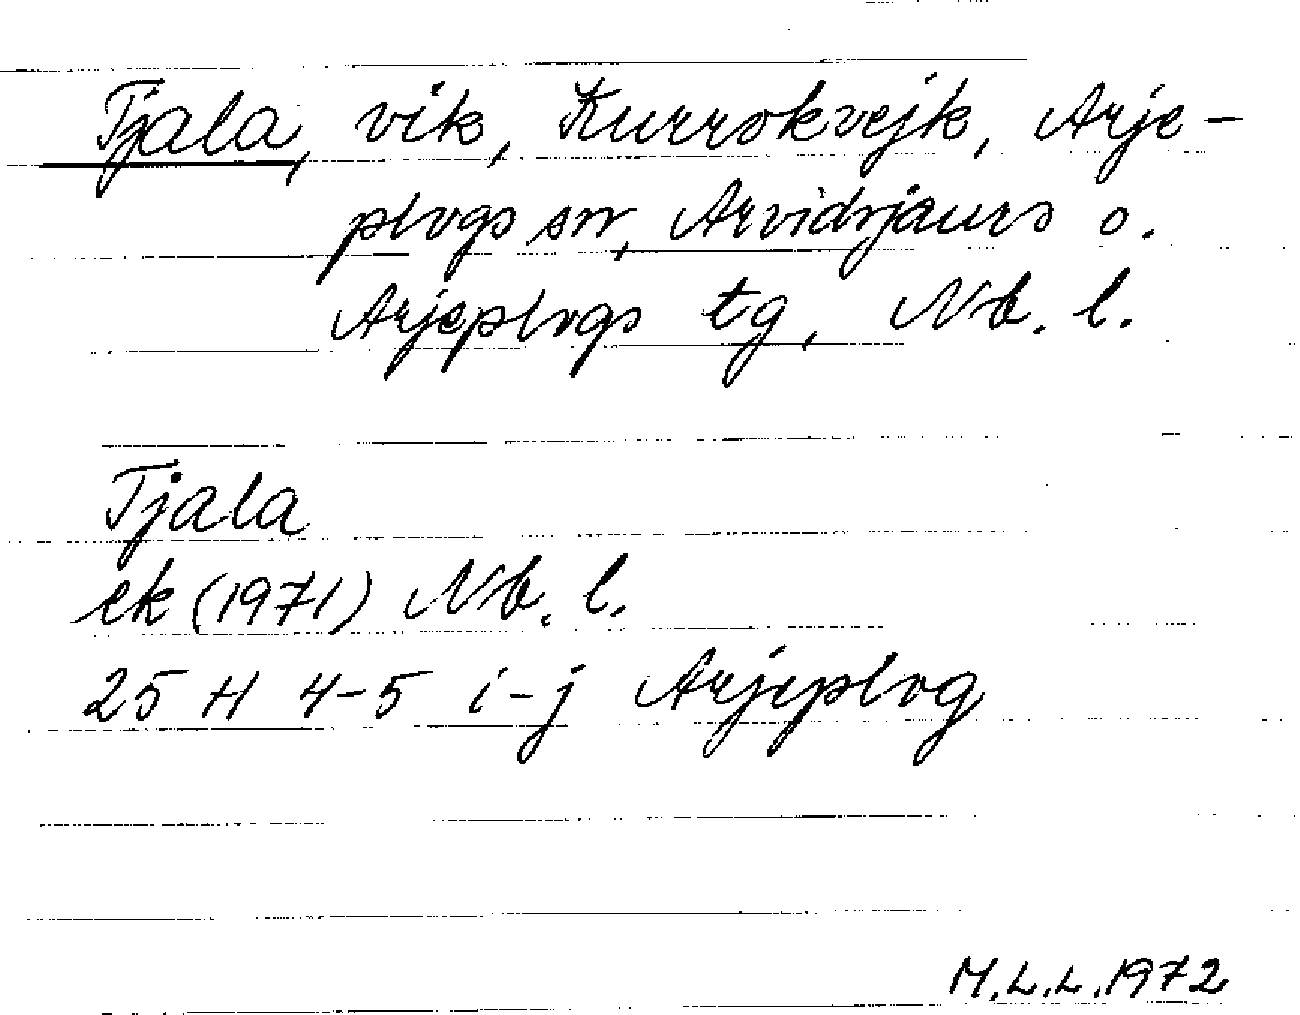 Tjala, vik, Kurrokvejk, Arje-
plogs sn, Arvidsjaurs o.
Arjeplogs tg, Nb. l.
Tjala
ek (1971) Nb. l.
25 H 4-5 i-j Arjeplog
M.L.L. 1972